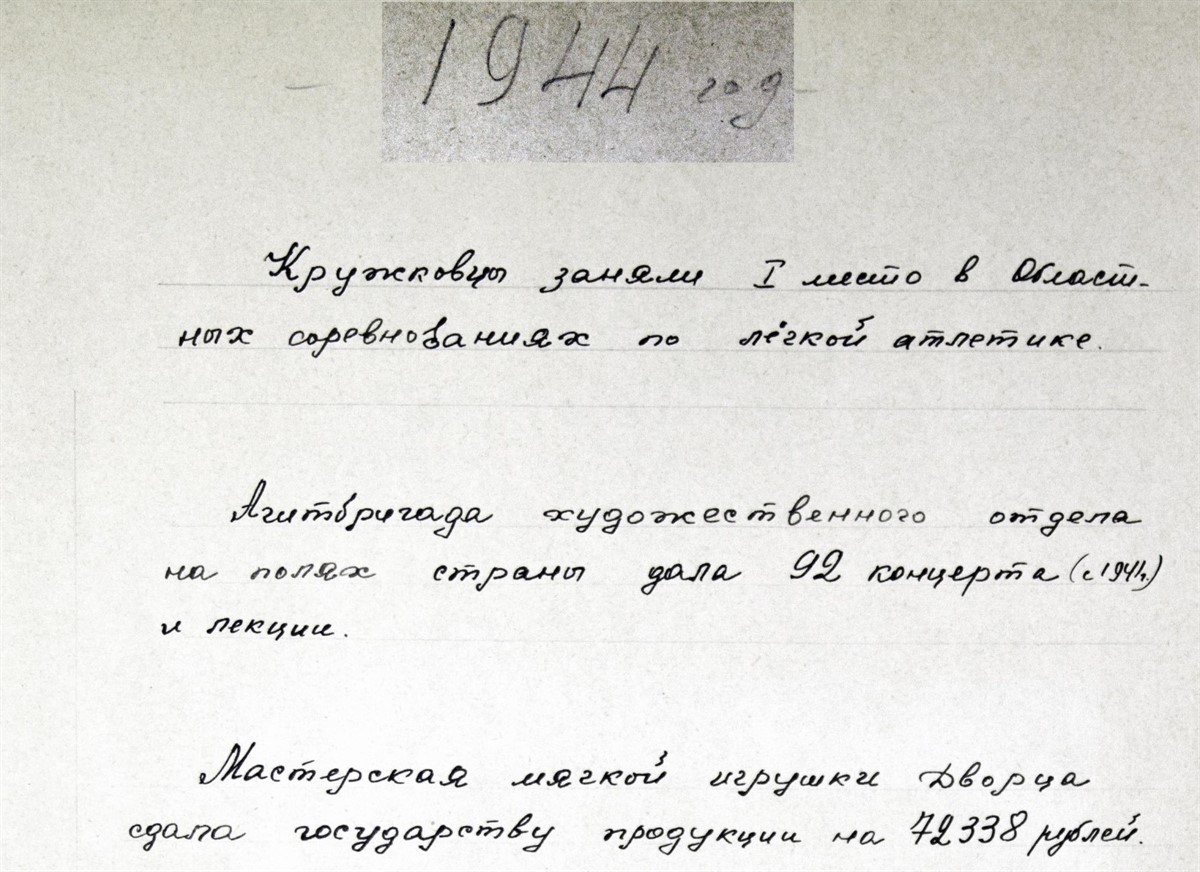 1944 год
Кружковцы заняли I место в Област-
ных соревнованиях по лёгкой атлетике.
Агитбригада художественного отдела
на полях страны дала 92 концерта (с 1941г.)
и лекции.
Мастерская мягкой игрушки Дворца
сдала государству продукции на 72338 рублей.